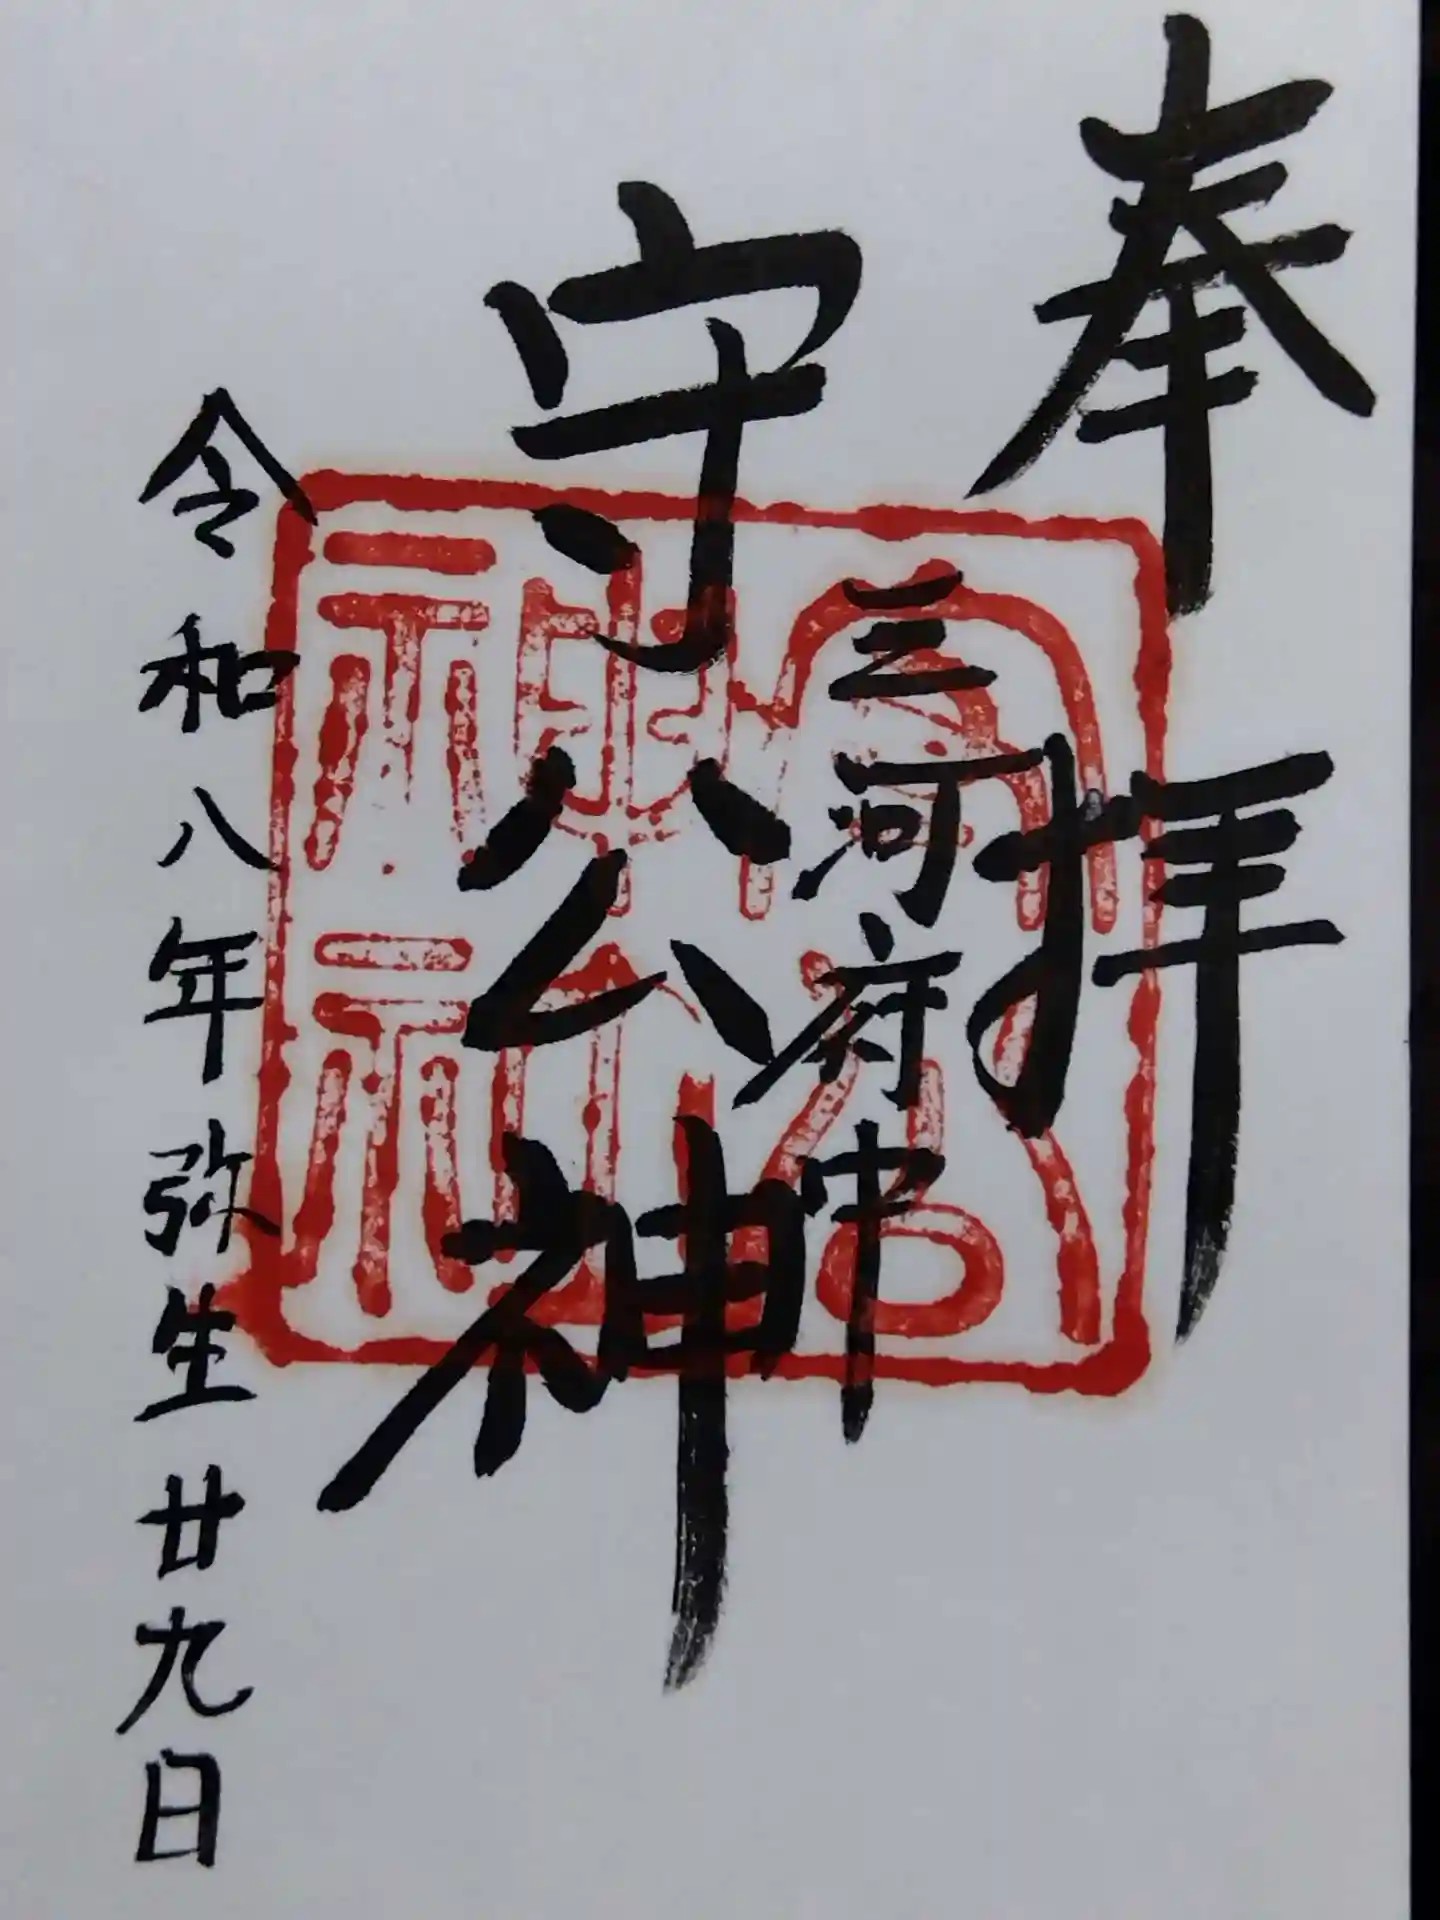 奉拝
三河府中
守公神
守公神社
令和八年弥生廿九日